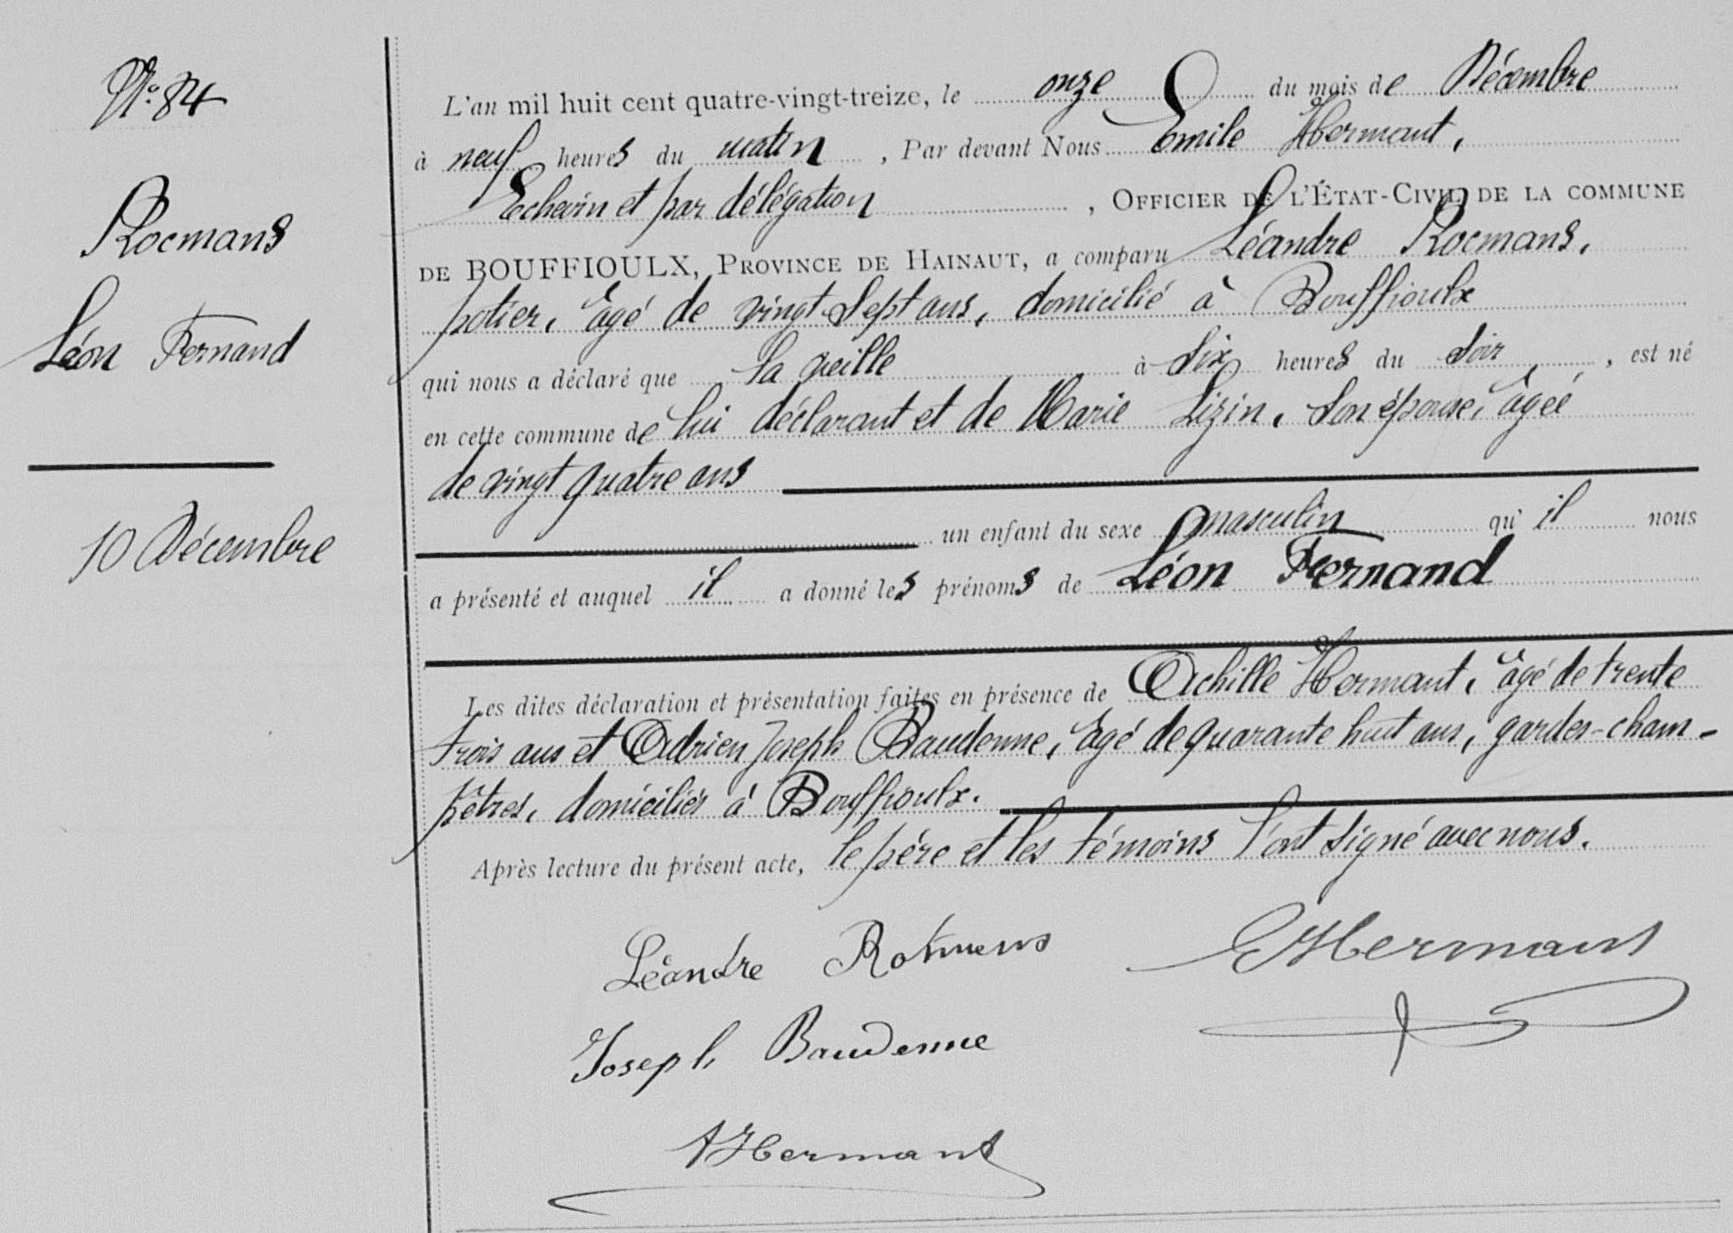 N° 84
Rocmans
Léon Fernand
10 Décembre
L'an mil huit cent quatre-vingt-treize, le onze du mois de Décembre
à neuf heures du matin, Par devant Nous Emile Hermant,
Echevin et par délégation, OFFICIER DE L'ÉTAT-CIVIL DE LA COMMUNE
DE BOUFFIOULX, PROVINCE DE HAINAUT, a comparu Léandre Rocmans,
potier, âgé de vingt sept ans, domicilié à Bouffioulx
qui nous a déclaré que la veille à six heures du soir, est né
en cette commune de lui déclarant et de Marie Lizin, son épouse, âgée
de vingt quatre ans
un enfant du sexe masculin qu'il nous
a présenté et auquel il a donné les prénoms de Léon Fernand
Les dites déclaration et présentation faites en présence de Achille Hermant, âgé de trente
trois ans et Adrien Joseph Baudenne, âgé de quarante huit ans, gardes-cham-
pêtres, domiciliés à Bouffioulx.
Après lecture du présent acte, le père et les témoins l'ont signé avec nous.
Léandre EHermant
Joseph Baudenne
AHermant